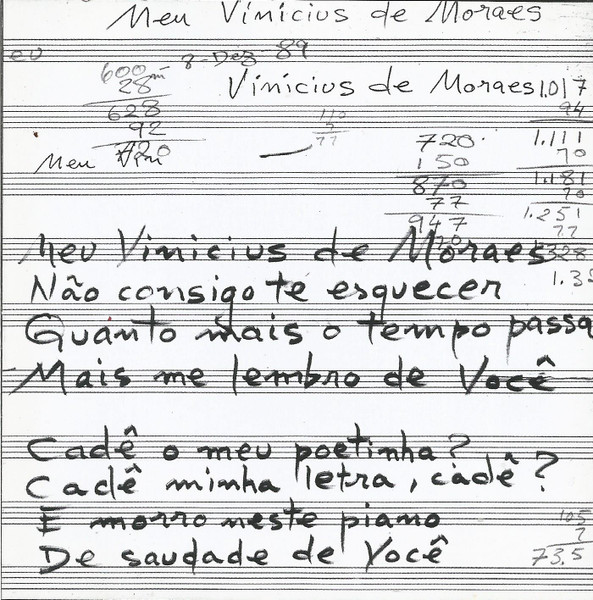 Meu Vinicius de Moraes
eu
8-Dez-89
600
28
628
92
720
Vinicius de Moraes
1.017
94
1.111
70
1.181
70
1.251
77
1328
110
7
77
720
150
870
77
947
Meu Vini
Meu Vinicius de Moraes
Não consigo te esquecer
Quanto mais o tempo passa
Mais me lembro de Você
Cadê o meu poetinha?
Cadê minha letra, cadê?
E morro neste piano
De saudade de Você
105
7
73.5